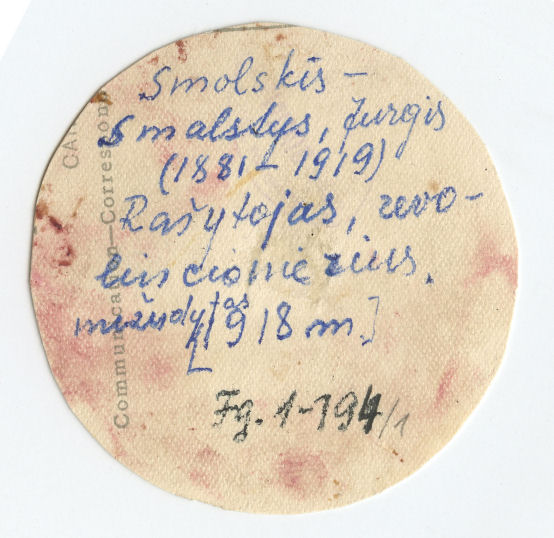 Smolskis –
Smalstys, Jurgis
(1881 – 1919)
Rašytojas, revo-
liucionierius.
nužudytas
[1918 m.]
Fg. 1-194/1
CA
Communica on—Correspon